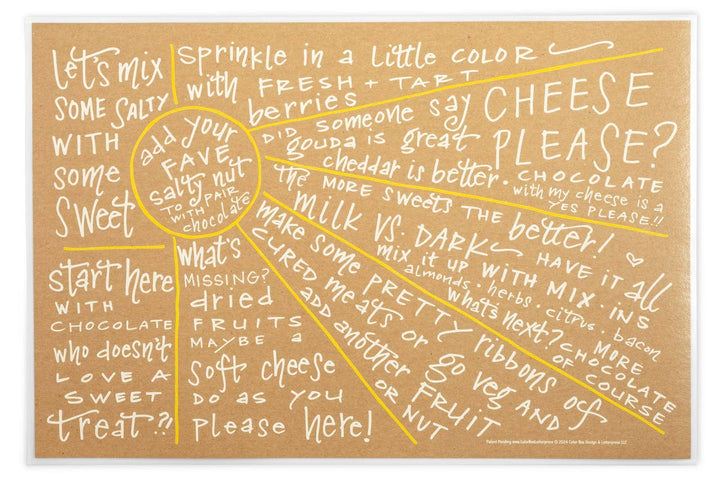 let's mix
SOME SALTY
WITH
some
Sweet
sprinkle in a little COLOR
with FRESH + TART
berries
add your
FAVE
salty nut
TO PAIR
WITH
chocolate
DID someone say
gouda is great
cheddar is better.
CHEESE
PLEASE?
CHOCOLATE
with my cheese is a
YES PLEASE!!
the MORE SWEETS THE better!
MILK VS. DARK
HAVE IT all
MIX IT UP WITH MIX.INS
almonds.herbs.citrus.bacon
what's next? MORE
CHOCOLATE
OF COURSE
make some PRETTY ribbons of
CURED meats or go veg AND
ADD another FRUIT
OR NUT
start here
WITH
CHOCOLATE
who doesn't
LOVE A
SWEET
treat?!
what's
MISSING?
dried
FRUITS
MAYBE a
soft cheese
DO AS YOU
please here!
Patent Pending www.ColorBoxLetterpress © 2024 Color Box Design & Letterpress LLC